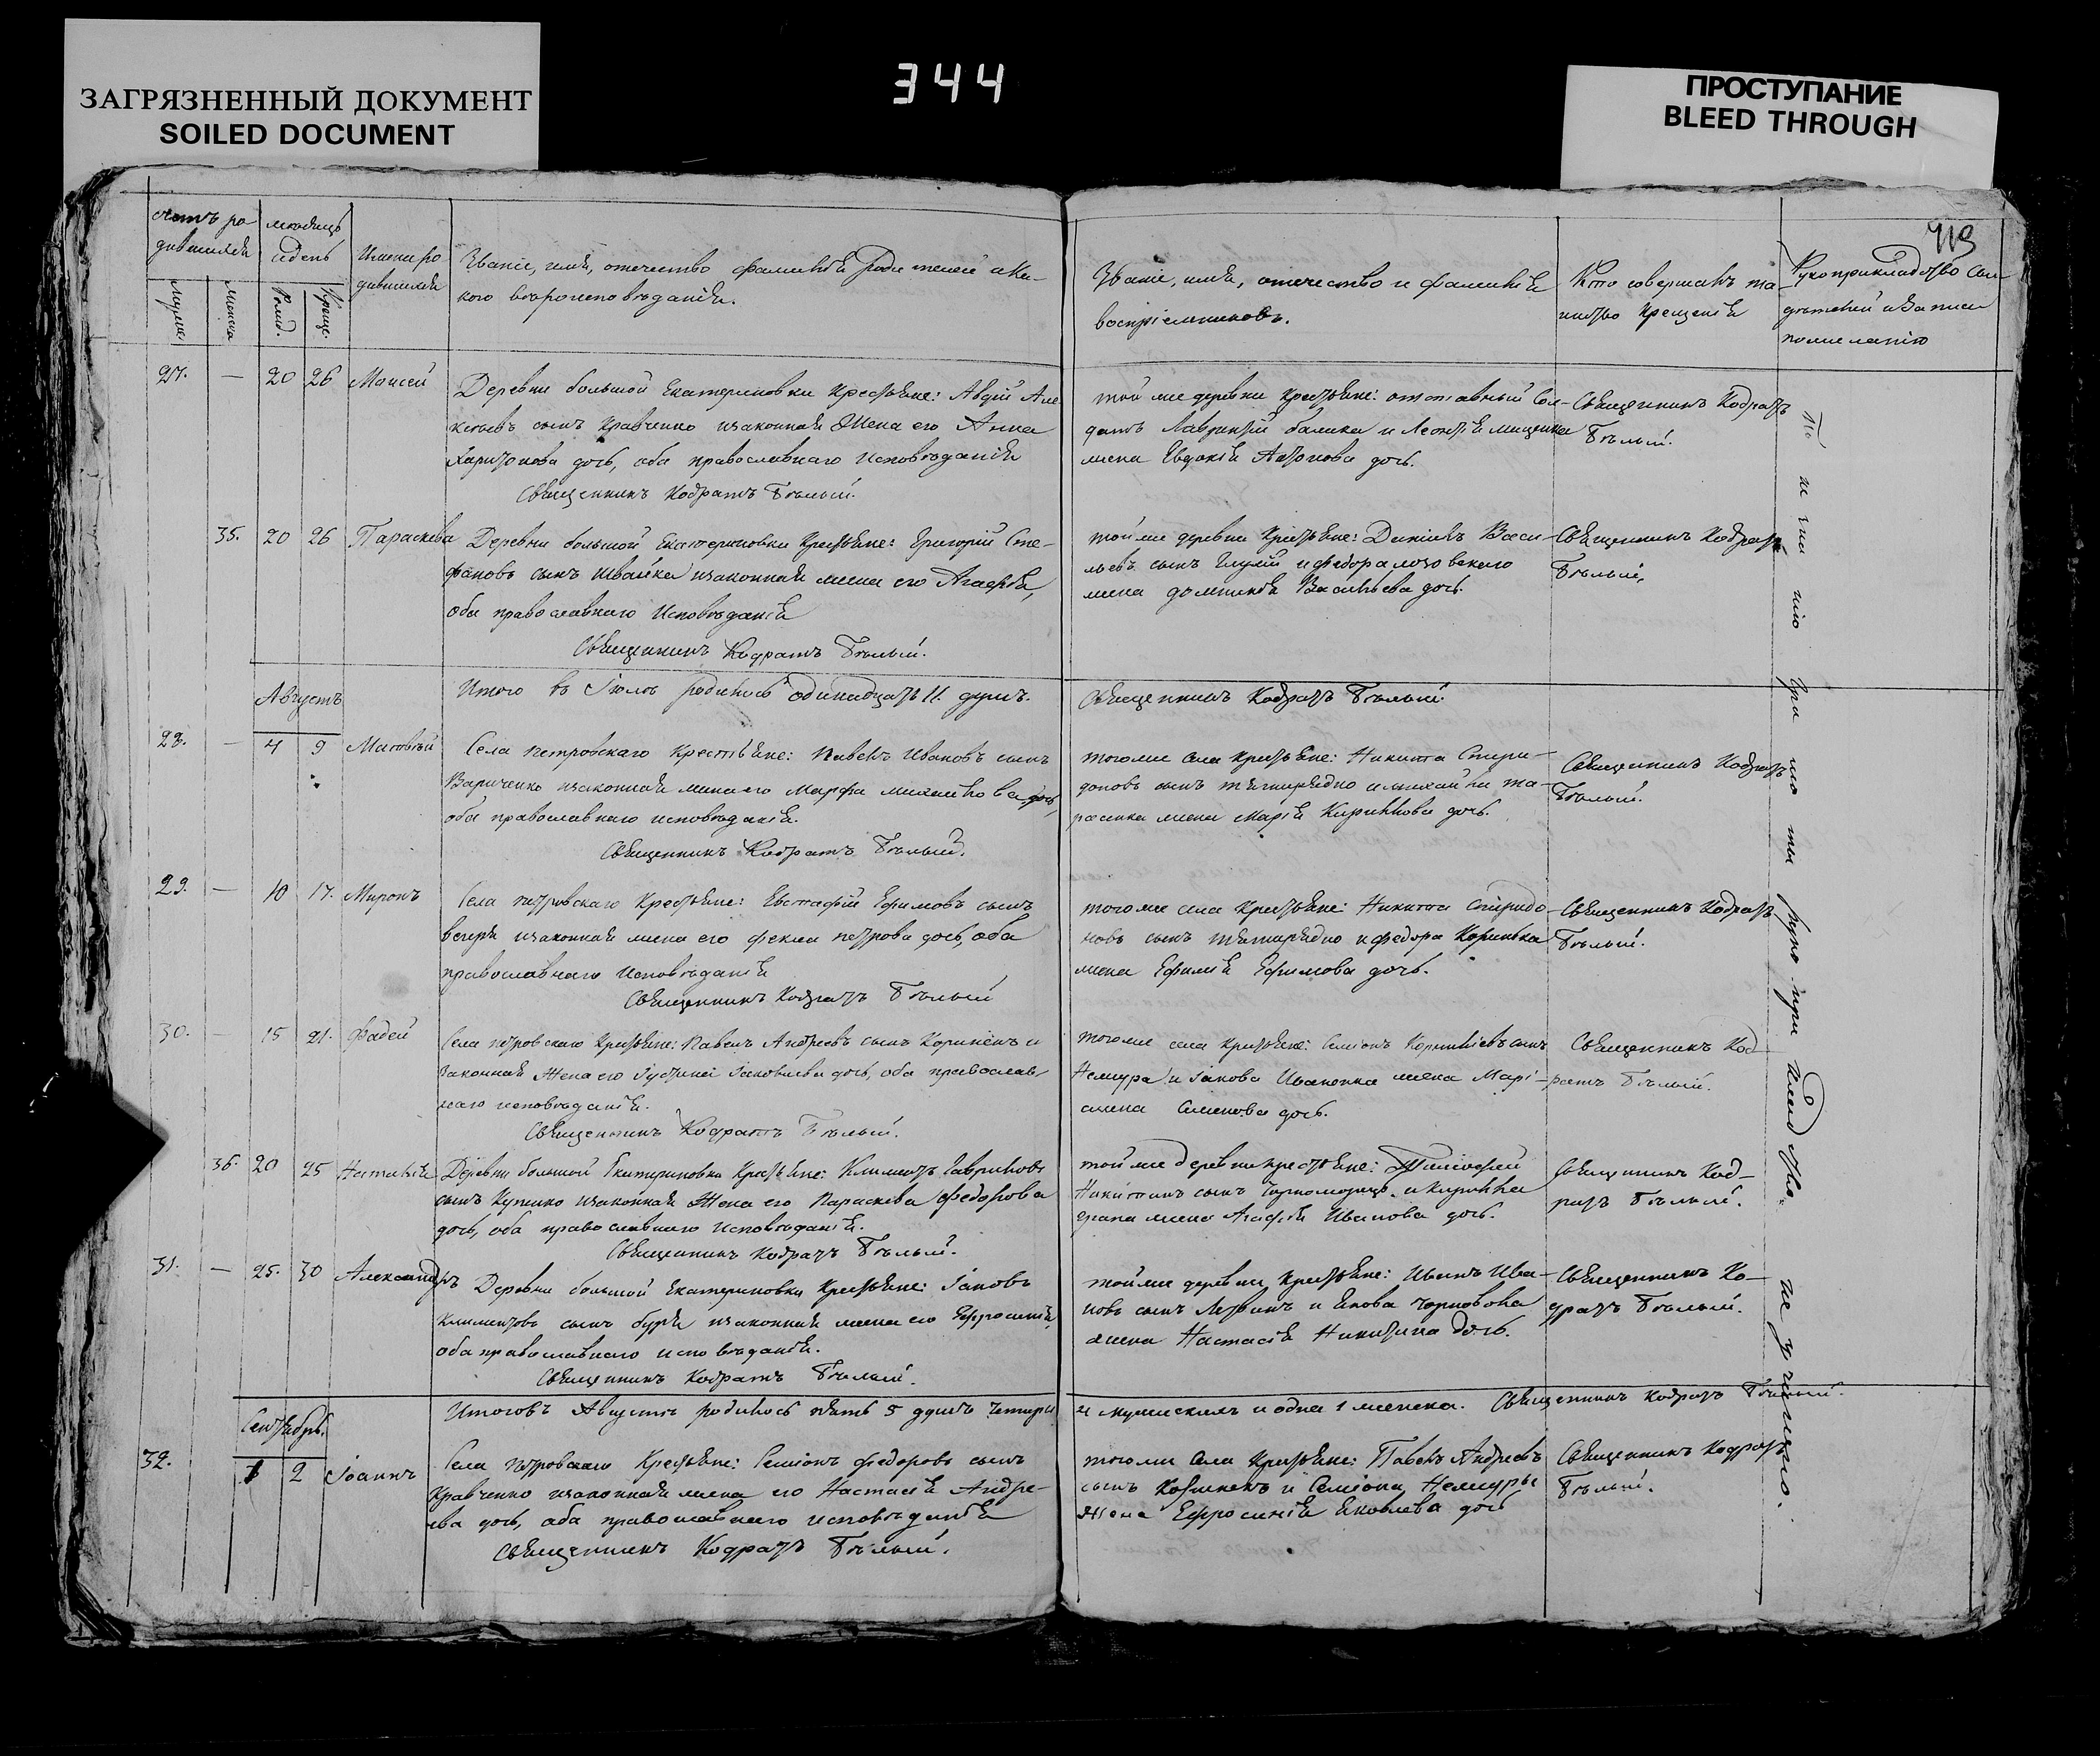 ЗАГРЯЗНЕННЫЙ ДОКУМЕНТ
SOILED DOCUMENT
344
ПРОСТУПАНИЕ
BLEED THROUGH
счетъ ро
дившихся
мѣсяцъ
и день
Имена ро
дившихся
Званіе, имя, отечество фамилія родителей и ка-
кого вѣроисповѣданія.
Званіе, имя, отечество и фамилія
воспріемниковъ.
Кто совершалъ та-
инство крещенія
Рукоприкладство сви-
дѣтелей о записи
по желанію
мужеск
женска
Рожд.
Креще.
27. — 20 26 Моисей
Деревни большой Екатериновки крестьяне: Авдѣй Але-
ксѣевъ сынъ Кравченко и законная жена его Анна
Харитонова дочь, оба православнаго исповѣданія
Священникъ Кодратъ Бѣлый.
той же деревни крестьяне: отставный сол-
датъ Лаврентій и Леонтія
жена Евдокія Антонова дочь.
Священникъ Кодратъ
Бѣлый.
35. 20 26 Параскева
Деревни большой Екатериновки крестьяне: Григорій Сте-
фановъ сынъ Швайка и законная жена его Агафія,
оба православнаго исповѣданія
Священникъ Кодратъ Бѣлый.
той же деревни крестьяне: Даніилъ Васи-
льевъ сынъ и Федора Лозовскаго
жена Домникія Васильева дочь.
Священникъ Кодратъ
Бѣлый.
Итого въ Іюлѣ родилось одинадцать 11. душъ.
Священникъ Кодратъ Бѣлый.
Августъ
28. — 4 9 Матвѣй
Села Петровскаго крестьяне: Павелъ Ивановъ сынъ
Вариченко и законная жена его Марфа Михайлова дочь,
оба православнаго исповѣданія.
Священникъ Кодратъ Бѣлый.
того же села крестьяне: Никита Спири-
доновъ сынъ и Михайла Та-
расенка жена Марія Кирилова дочь.
Священникъ Кодратъ
Бѣлый.
29. — 10 17. Миронъ
Села Петровскаго крестьяне: Евстафій Ефимовъ сынъ
Вечеря и законная жена его Фекла Петрова дочь, оба
православнаго исповѣданія
Священникъ Кодратъ Бѣлый
того же села крестьяне: Никита Спиридо-
новъ сынъ и Федора
жена Ефимія Ефимова дочь.
Священникъ Кодратъ
Бѣлый.
30. — 15 21. Фадей
Села Петровскаго крестьяне: Павелъ Андреевъ сынъ и
законная жена его Іустинія Іаковлева дочь, оба православ-
наго исповѣданія.
Священникъ Кодратъ Бѣлый.
того же села крестьяне: Семіонъ Корнилѣевъ сынъ
Немура и Іакова Иваненка жена Марі-
амна Семенова дочь.
Священникъ Код-
ратъ Бѣлый.
36. 20 25 Наталія
Деревни большой Екатериновки крестьяне: Климентъ Гавриловъ
сынъ Куценко и законная жена его Параскева Федорова
дочь, оба православнаго исповѣданія.
Священникъ Кодратъ Бѣлый.
той же деревни крестьяне: Тимофей
Никитинъ сынъ Чорноморецъ и Кирилла
жена Агафія Иванова дочь.
Священникъ Код-
ратъ Бѣлый.
31. — 25. 30 Александръ
Деревни большой Екатериновки крестьяне: Іаковъ
Климентовъ сынъ Буря и законная жена его Ефросинія,
оба православнаго исповѣданія.
Священникъ Кодратъ Бѣлый.
той же деревни крестьяне: Иванъ Ива-
новъ сынъ и Якова
жена Настасія Никитина дочь.
Священникъ Ко-
дратъ Бѣлый.
Итого въ Августѣ родилось пять 5 душъ четыри
4 мужескихъ и одна 1 женска. Священникъ Кодратъ Бѣлый.
Сентябрь.
32. 1 2 Іоаннъ
Села Петровскаго крестьяне: Семіонъ Федоровъ сынъ
Кравченко и законная жена его Настасія Андре-
ева дочь, оба православнаго исповѣданія
Священникъ Кодратъ Бѣлый.
того же села крестьяне: Павелъ Андреевъ
сынъ и Семіона Немуры
жена Ефросинія Яковлева дочь
Священникъ Кодратъ
Бѣлый.